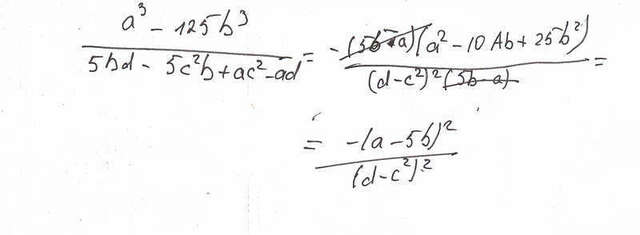 (a³ - 125b³)/(5bd - 5c²b + ac² - ad) = (-(5b-a)(a² - 10Ab + 25b²))/((d-c²)²(5b-a)) =
= (-(a - 5b)²)/((d-c²)²)